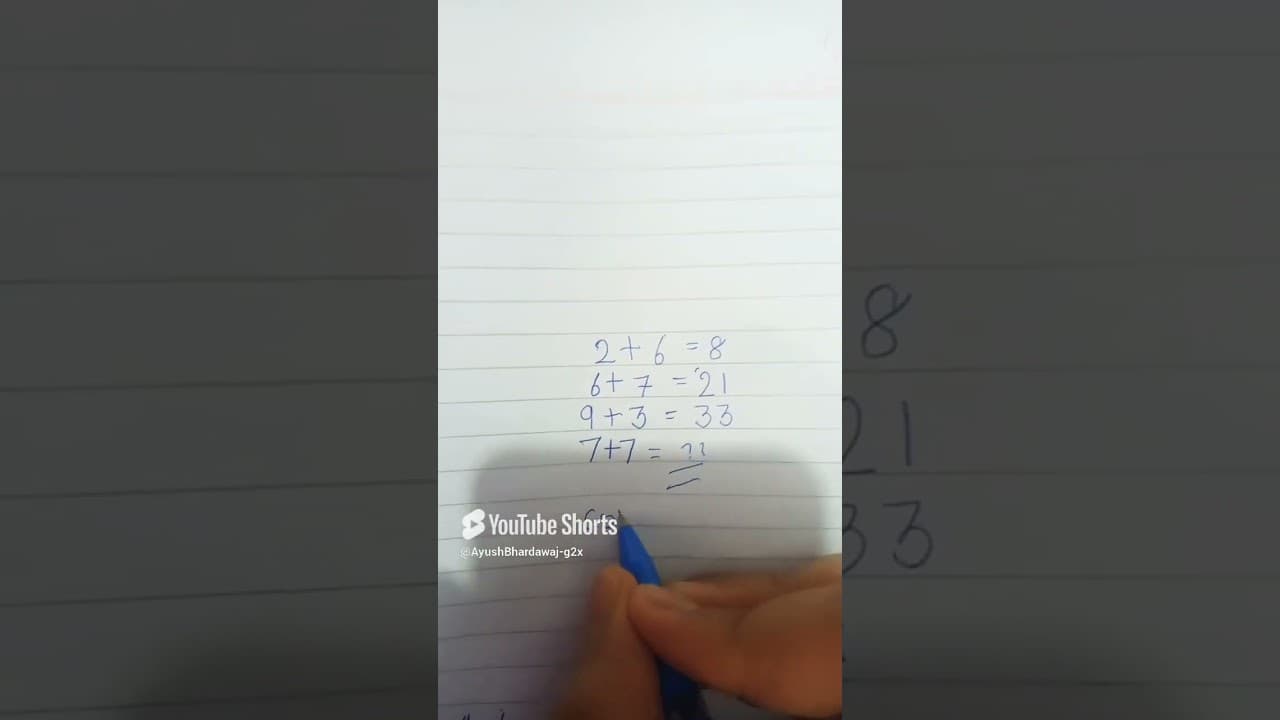 2 + 6 = 8
6 + 7 = 21
9 + 3 = 33
7+7 = ??
YouTube Shorts
@AyushBhardawaj-g2x
8
21
33